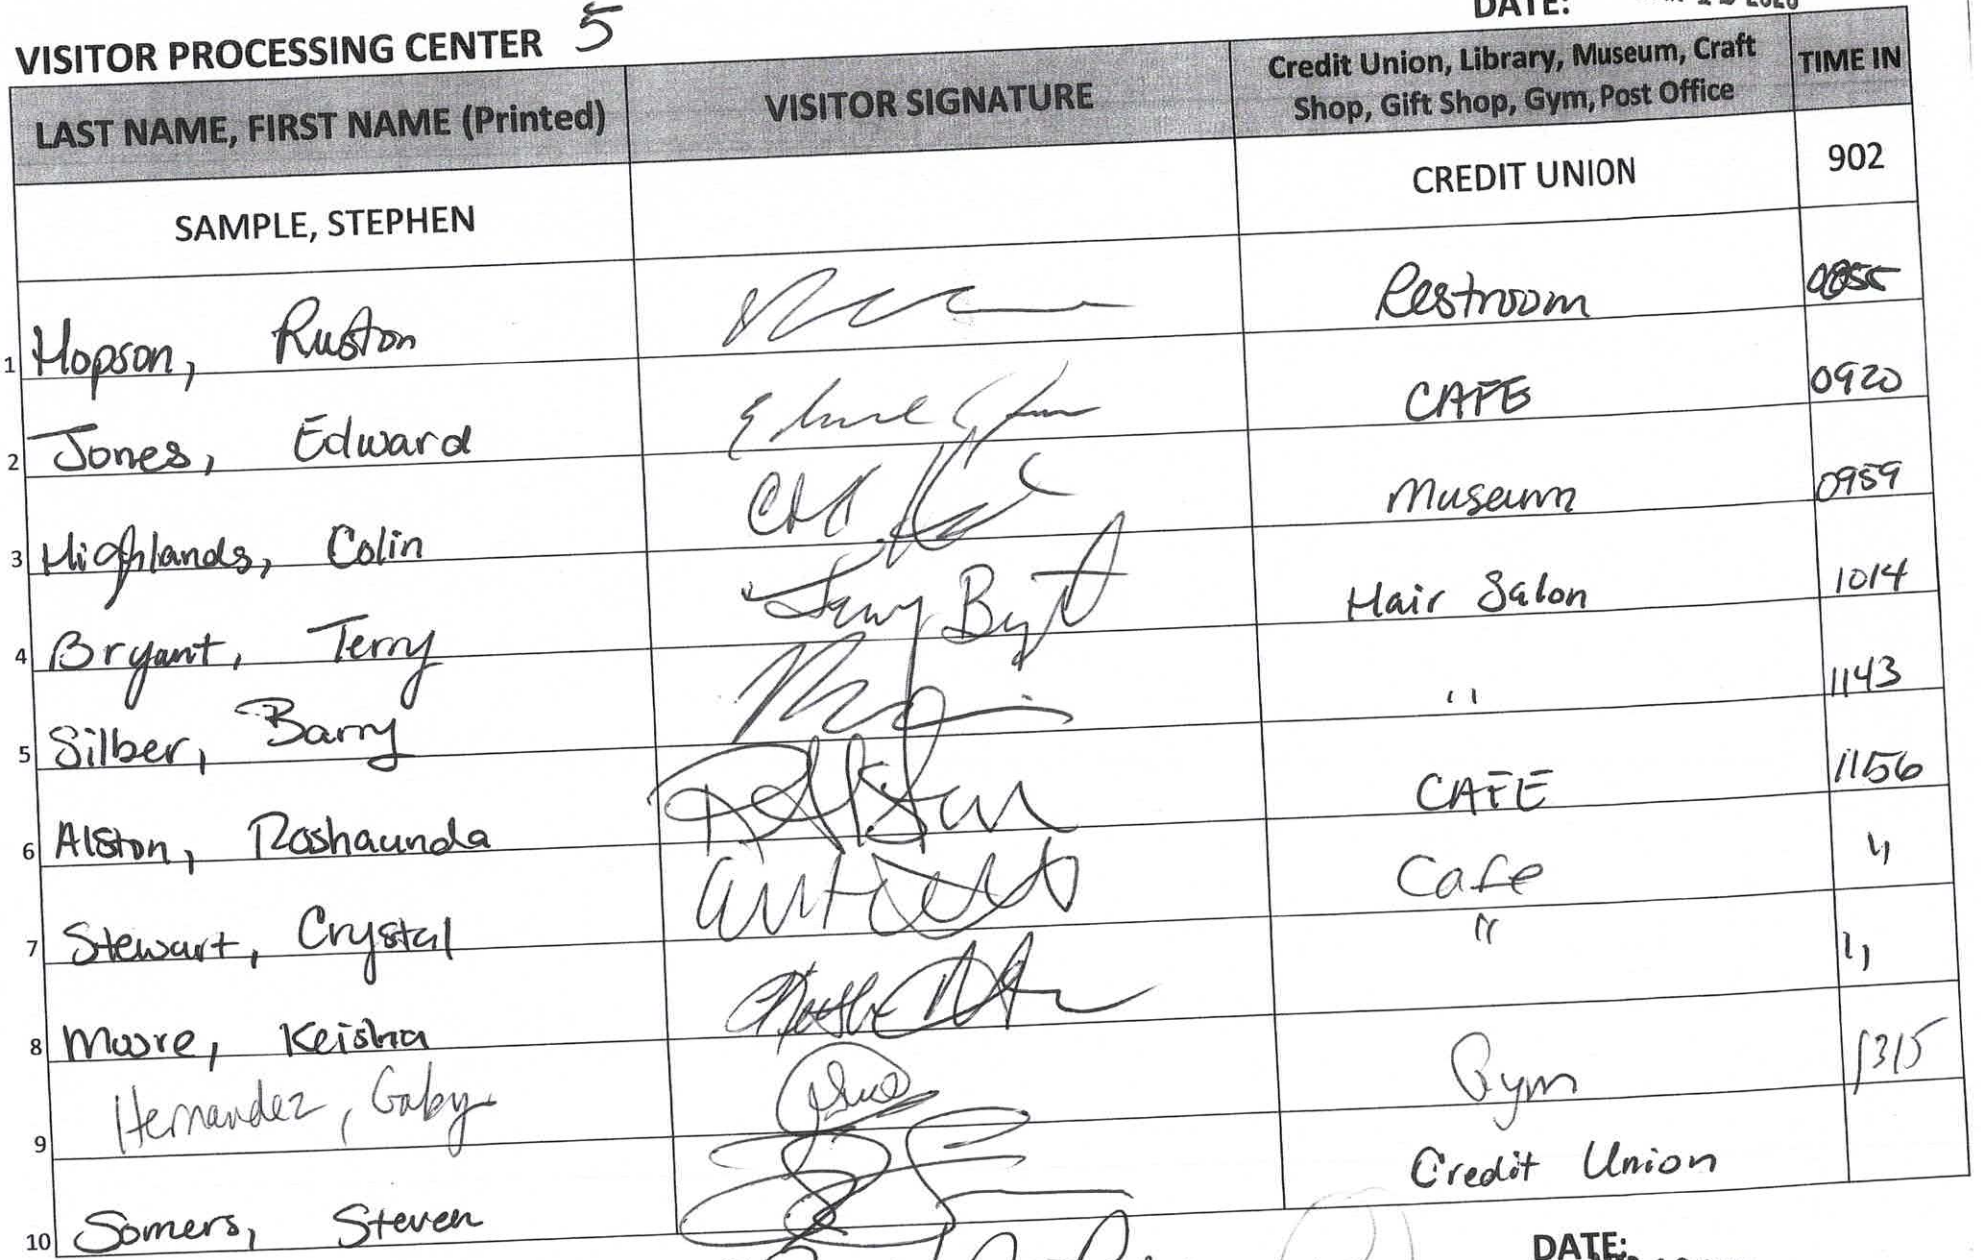 VISITOR PROCESSING CENTER 5 DATE:
LAST NAME, FIRST NAME (Printed) VISITOR SIGNATURE Credit Union, Library, Museum, Craft Shop, Gift Shop, Gym, Post Office TIME IN
SAMPLE, STEPHEN CREDIT UNION 902
1 Hopson, Ruston Restroom 0855
2 Jones, Edward CAFE 0920
3 Highlands, Colin Museum 0959
4 Bryant, Terry Hair Salon 1014
5 Silber, Barry " 1143
6 Alston, Roshaunda CAFE 1156
7 Stewart, Crystal Cafe "
8 Moore, Keisha " "
9 Hernandez, Gaby Gym 1315
10 Somers, Steven Credit Union
DATE: